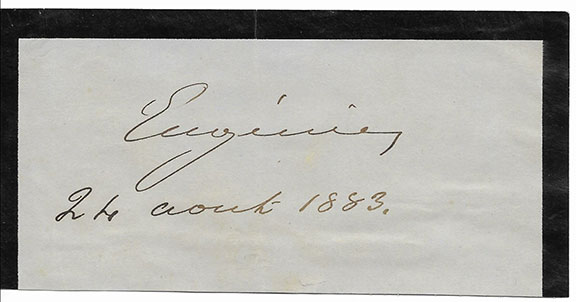 Eugénie
24 aout 1883.